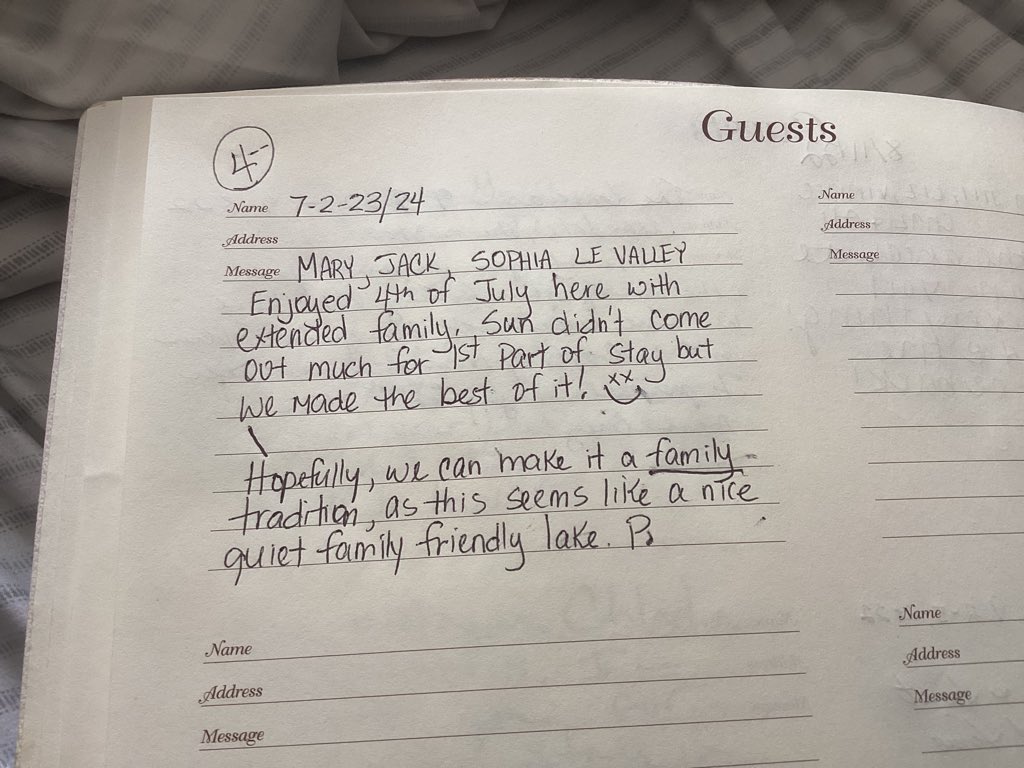 Guests
4-
Name 7-2-23/24
Address
Message MARY, JACK, SOPHIA LE VALLEY
Enjoyed 4th of July here with
extended family. Sun didn't come
out much for 1st part of stay but
we made the best of it!
Hopefully, we can make it a family
tradition, as this seems like a nice
quiet family friendly lake.
Name
Address
Message
Name
Address
Message
Name
Address
Message